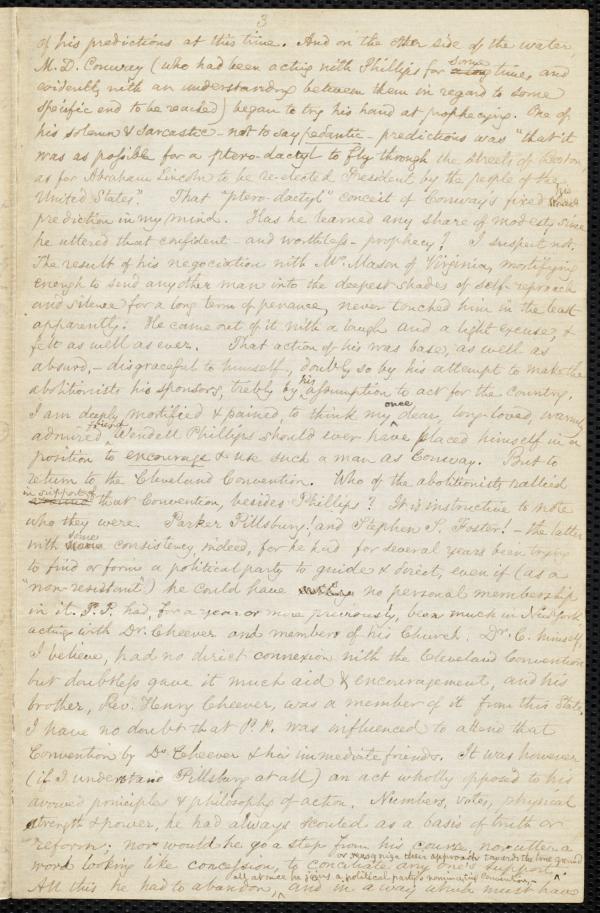 3
of his predictions at this time. And on the other side of the water,
M. D. Conway (who had been acting with Phillips for some time, and
evidently with an understanding between them in regard to some
specific end to be reached) began to try his hand at prophecying. One of
his solemn & sarcastic - not to say pedantic - predictions was "that it
was as possible for a ptero-dactyl to fly through the streets of Boston,
as for Abraham Lincoln to be re-elected President by the people of the
United States". That "ptero-dactyl" conceit of Conway's fixed his
prediction in my mind. Has he learned any share of modesty since
he uttered that confident - and worthless - prophecy? I suspect not.
The result of his negociation with Mr. Mason of Virginia, mortifying
enough to send any other man into the deepest shades of self-reproach
and silence for a long term of penance, never touched him in the least
apparently. He came out of it with a laugh and a light excuse, &
felt as well as ever. That action of his was base, as well as
absurd, - disgraceful to himself, doubly so by his attempt to make the
abolitionists his sponsors, trebly by his assumption to act for the country.
I am deeply mortified & pained, to think my once dear, long-loved, warmly
admired friend Wendell Phillips should ever have placed himself in a
position to encourage & use such a man as Conway. But to
return to the Cleveland Convention. Who of the abolitionists rallied
in support of that Convention, besides Phillips? It is instructive to note
who they were. Parker Pillsbury! and Stephen S. Foster! - the latter
with some consistency, indeed, for he had for several years been trying
to find or form a political party to guide & direct, even if (as a
"non-resistant") he could have no personal membership
in it. P. P. had, for a year or more previously, been much in New York
acting with Dr. Cheever and members of his Church. Dr. C. himself,
I believe, had no direct connexion with the Cleveland Convention
but doubtless gave it much aid & encouragement, and his
brother, Rev. Henry Cheever, was a member of it from this State.
I have no doubt that P. P. was influenced to attend that
Convention by Dr. Cheever & his immediate friends. It was however
(if I understand Pillsbury at all) an act wholly opposed to his
avowed principles & philosophy of action. Numbers, votes, physical
strength & power, he had always scouted as a basis of truth or
reform; nor would he go a step from his course, nor utter a
word looking like concession, to conciliate any one's support
or recognize their approach towards the true ground.
All this he had to abandon, and in a way which must have
all at once he joins a political party's nominating convention,